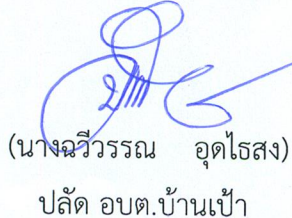 (นางฉวีวรรณ อุดไธสง)
ปลัด อบต.บ้านเป้า